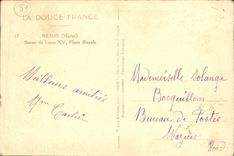 51
LA DOUCE FRANCE
17 REIMS (Marne)
Statue de Louis XV, Place Royale
Meilleures amitiés
Mme
Mademoiselle Solange
Bocquillon
Bureau de Postes
Waziers
Nord